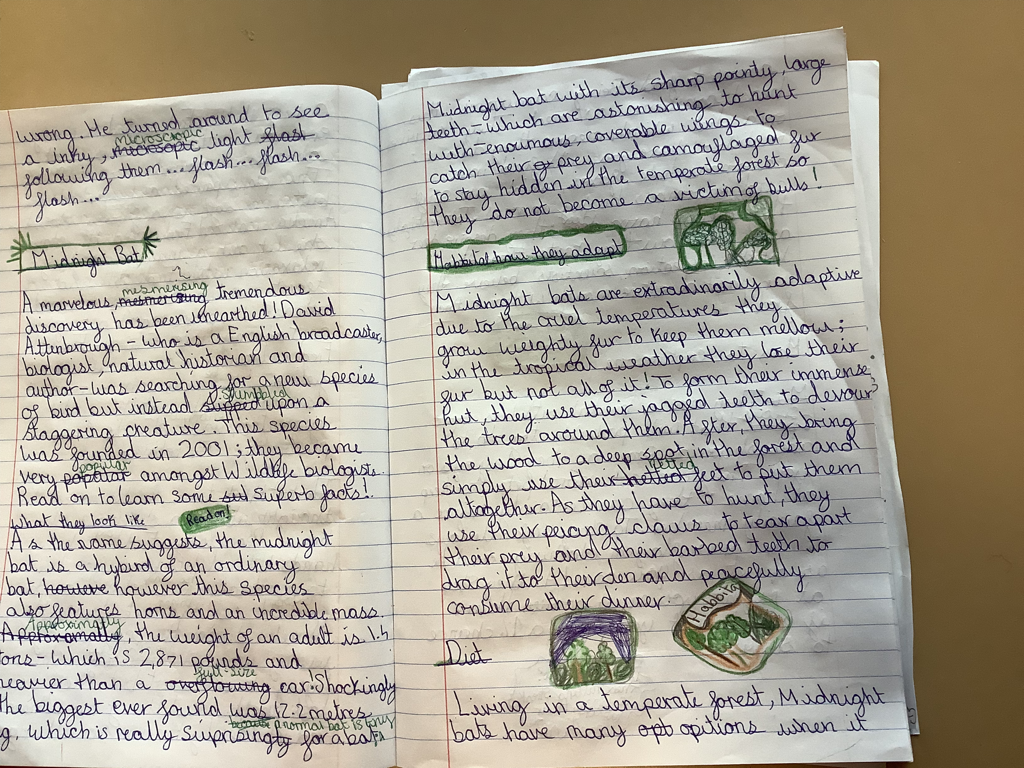 wrong. He turned around to see
microscopic
a inky, micosopic light flast
following them... flash... flash...
flash...
Midnight Bat
mesmerising
A marvelous, mesmerising tremendous
discovery has been unearthed! David
Attenbrough - who is a English broadcaster,
biologist, natural historian and
author - was searching for a new species
stumbled
of bird but instead upon a
staggering creature. This species
was founded in 2001; they became
popular
very popular amongst Wildlife biologists.
Read on to learn some superb facts!
What they look like
Read on!
As the name suggests, the midnight
bat is a hybird of an ordinary
bat, however this species
also features horns and an incredible mass.
Approximaptly
Approxamatly, the weight of an adult is 1.4
tons - which is 2,871 pounds and
full-size
heavier than a overflowing car! Shockingly
the biggest ever found was 12.2 metres
because a normal bat is
g, which is really surprisingty for a bat
Midnight bat with its sharp pointy, large
teeth - which are astonishing to hunt
with - enoumous, coverable wings to
catch their prey and camouflaged fur
to stay hidden in the temperate forest so
they do not become a victim of bulls!
Habbitat how they adapt
Midnight bats are extradinarily adaptive
due to the cruel temperatures they
grow weighty fur to keep them mellow;
in the tropical weather they lose their
fur but not all of it! To form their immense
hut, they use their jagged teeth to devour
the trees around them. After, they bring
the wood to a deep spot in the forest and
simply use their feet to put them
altogether. As they have to hunt, they
use their percing claws to tear apart
their prey and their barbed teeth to
drag it to their den and peacefully
consume their dinner.
Habbitat
Diet
Living in a temperate forest, Midnight
bats have many opt opitions when it